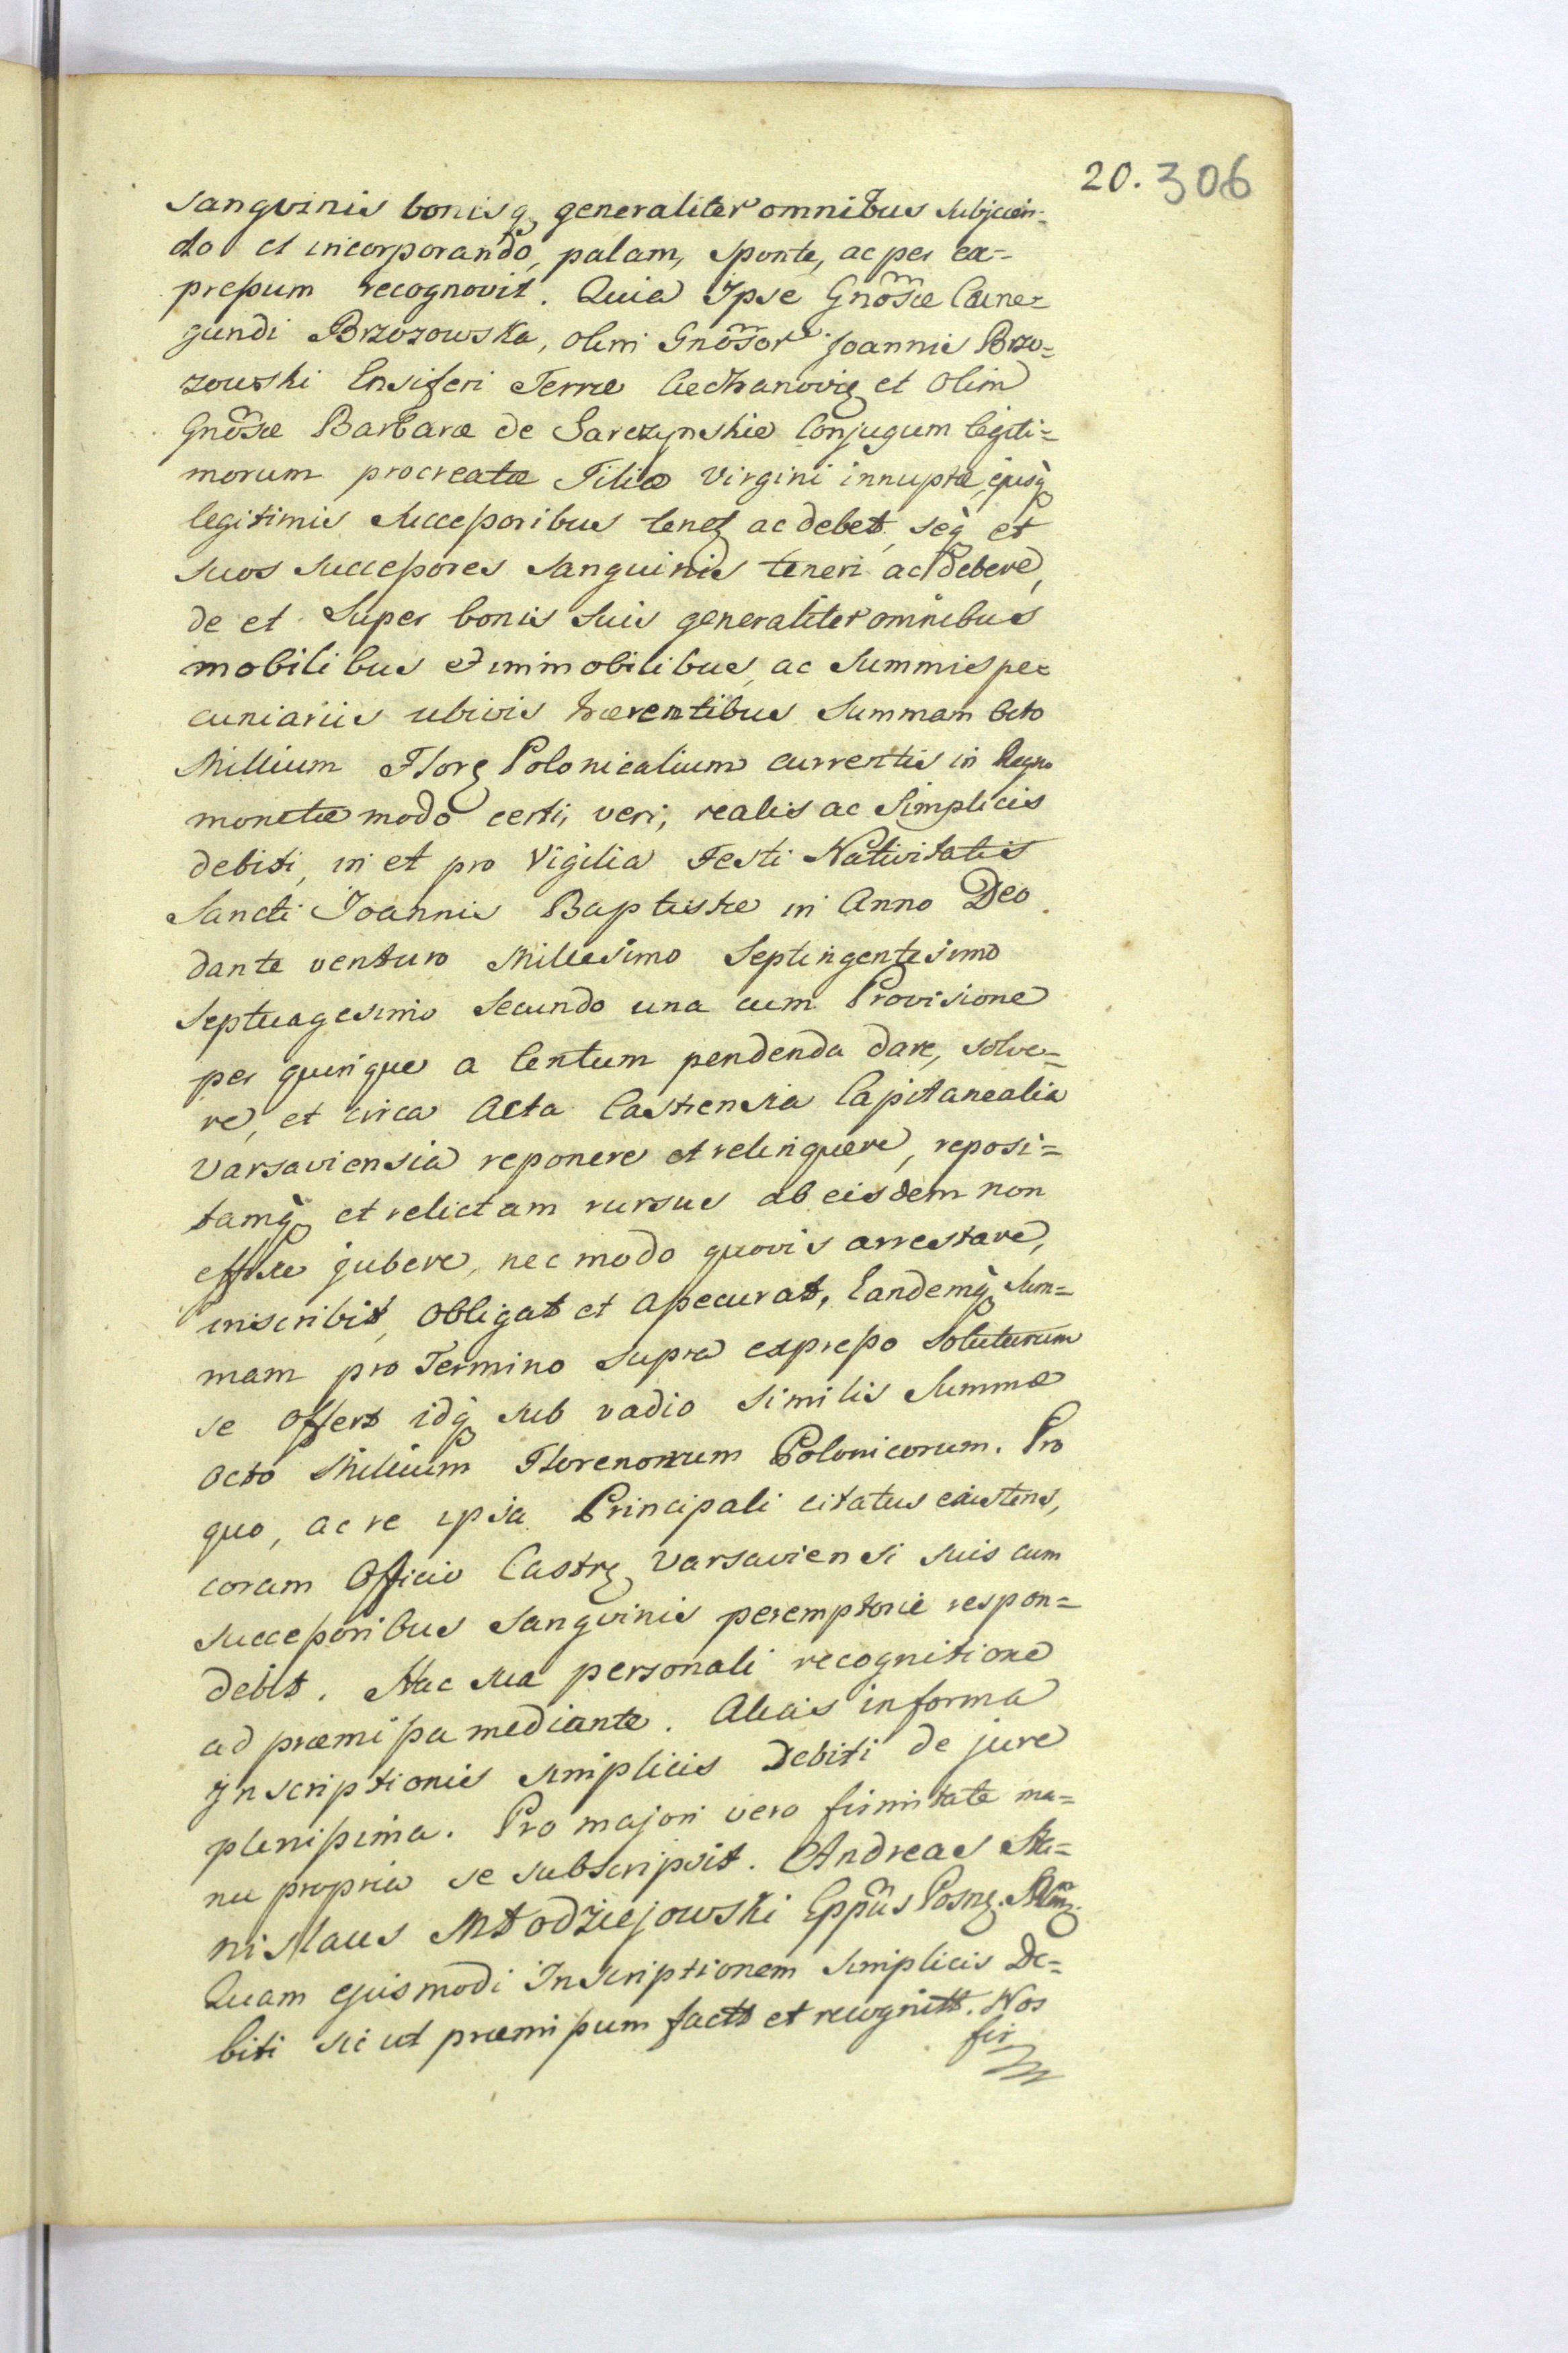 20. 306
sangvinis bonisq generaliter omnibus subjicien=
do et incorporando, palam, sponte, ac per ex=
pressum recognovit. Quia Ipse Gnosæ Cune=
gundi Brzozowska, olim Gnosor Joannis Brzo=
zowski Ensiferi Terræ Ciechanovię et olim
Gnosæ Barbaræ de Sarczynskie Conjugum legiti=
morum procreatæ Filiæ Virgini innuptæ, ejusq
legitimis Successoribus tenet ac debet, seq et
suos Successores Sanguinis teneri ac debere,
de et Super bonis suis generaliter omnibus
mobilibus et immobilibus, ac Summis pe=
cuniariis ubivis hærentibus Summam Octo
Millium Flor Polonicalium currentis in Regno
monetæ modo certi, veri, realis ac Simplicis
debiti, in et pro Vigilia Festi Nativitatis
Sancti Joannis Baptistæ in Anno Deo
dante venturo Millesimo Septingentesimo
Septuagesimo Secundo una cum Provisione
per quinque a Centum pendenda dare, solve=
re, et circa Acta Castrensia Capitanealia
Varsaviensia reponere et relinquere, reposi=
tamq et relictam rursus ab eisdem non
jubere, nec modo quovis arrestare,
inscribit, obligat et assecurat, Eandemq Sum=
mam pro Termino supra expresso soluturum
se offert idq sub vadio similis Summæ
Octo Millium Florenorum Polonicorum. Pro
quo, ac re ipsa Principali citatus existens,
coram Officio Castr Varsaviensi suis cum
successoribus Sangvinis peremptorie respon=
debit. Hac sua personali recognitione
ad præmissa mediante. Alias in forma
Inscriptionis simplicis Debiti de jure
plenissima. Pro majori vero firmitate ma=
nu propria se subscripsit. Andreas Sta=
nislaus Młodziejowski Eppus Posn.
Quam ejusmodi Inscriptionem simplicis De=
biti sic ut præmissum factt et recognitt. Nos
fir